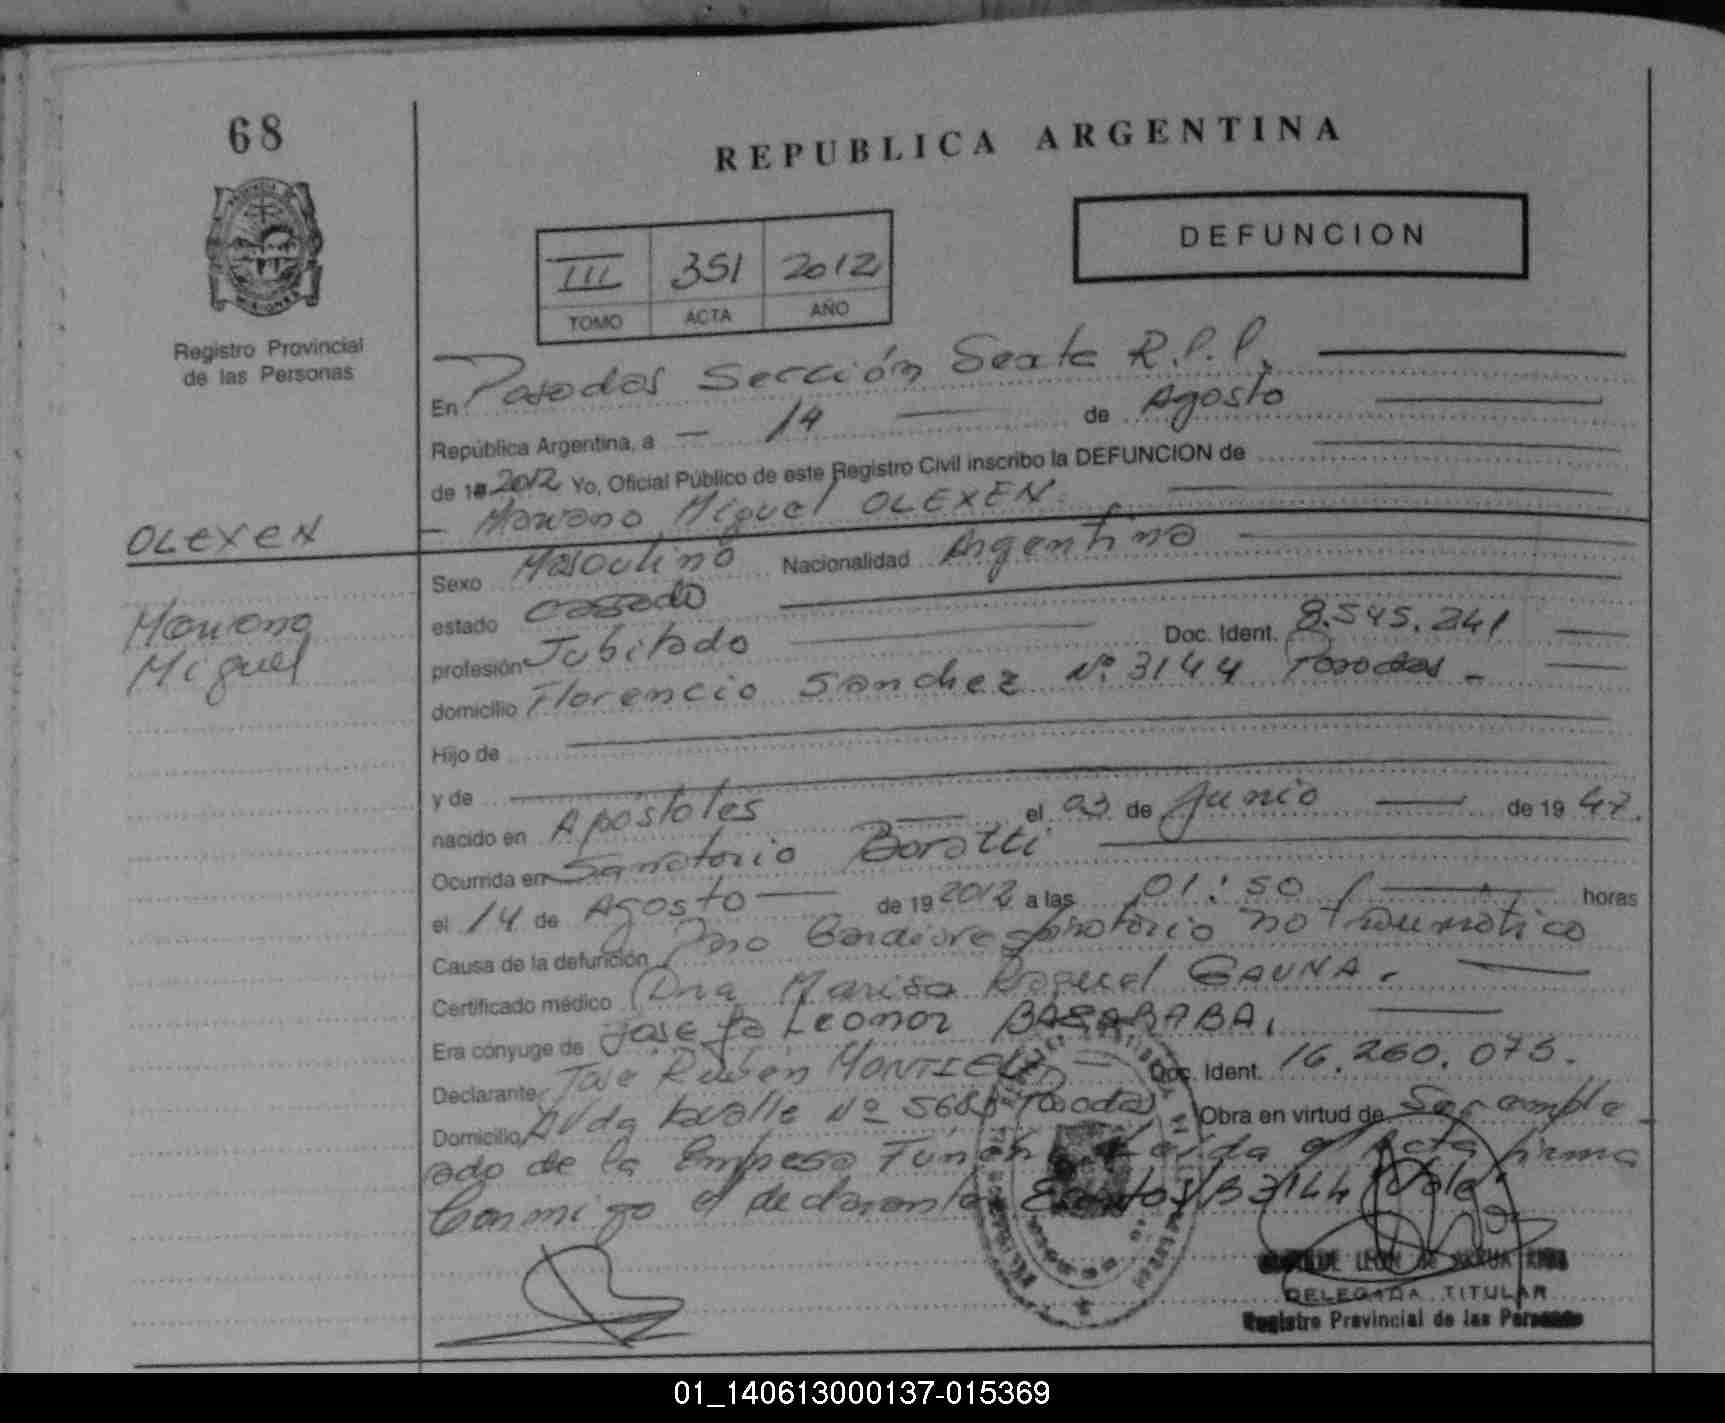 68
REPUBLICA ARGENTINA
DEFUNCION
III 351 2012
TOMO ACTA AÑO
Registro Provincial
de las Personas
En Posadas Sección Sexta R.P.P.
República Argentina, a 14 de Agosto
de 19 2012 Yo, Oficial Público de este Registro Civil inscribo la DEFUNCION de
Mariano Miguel OLEXEN
OLEXEN
Mariano
Miguel
Sexo Masculino Nacionalidad Argentina
estado casado
profesión Jubilado Doc. Ident. 8.545.241
domicilio Florencio Sanchez Nº 3144 Posadas -
Hijo de
y de
nacido en Apostoles el 03 de Junio de 19 47.
Ocurrida en Sanatorio Boratti
el 14 de Agosto de 19 2012 a las 01:50 horas
Causa de la defunción Paro Cardiorespiratorio no traumatico
Certificado médico Dra Marisa Raquel GAUNA.
Era cónyuge de Josefa Leonor BASARABA,
Declarante José Rubén MONTIEL Doc. Ident. 16.260.075.
Domicilio Avda Lavalle Nº Posadas Obra en virtud de Ser emple
ado de la Empresa Leida el Acta firma
Conmigo el declarante 3144 Vale
LEON de ARRUA
DELEGADA TITULAR
Registro Provincial de las Personas
01_140613000137-015369